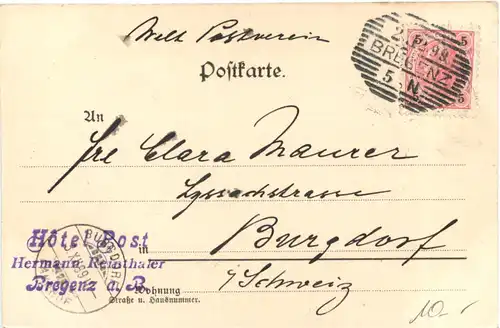 Welt Postverein
Postkarte.
5 5
BREGENZ
5 N
5
An
Frl Clara Maurer
Lyssachstrasse
in Burgdorf
Schweiz
Wohnung
Straße u. Hausnummer.
Hôtel Post
Hermann Reinthaler
Bregenz a. B.
BURGDORF
10.-